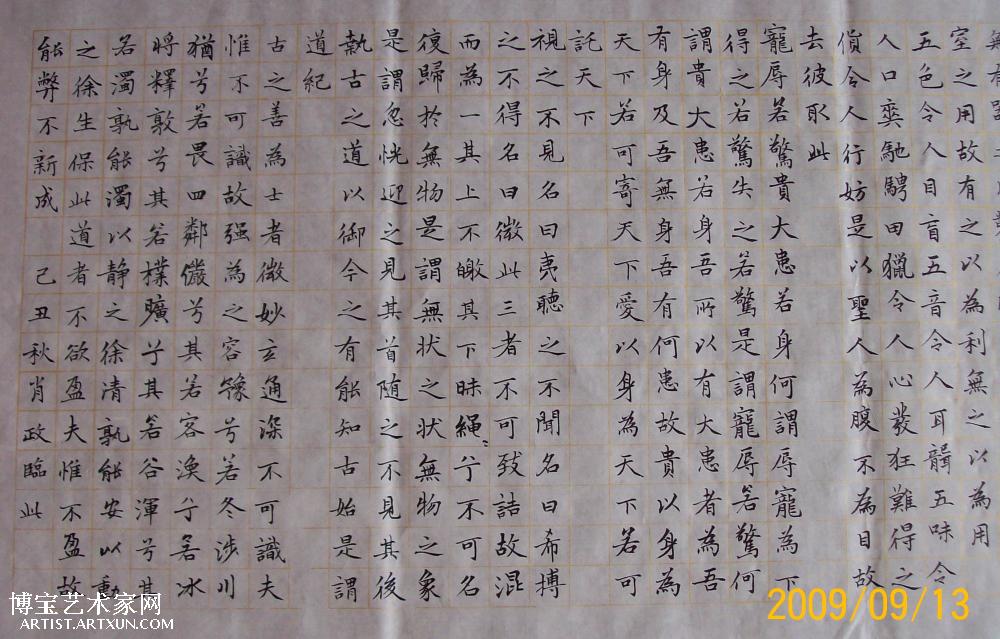 室之用故有之以為利無之以為用
五色令人目盲五音令人耳聾五味令
人口爽馳騁田獵令人心發狂難得之
貨令人行妨是以聖人為腹不為目故
去彼取此
寵辱若驚貴大患若身何謂辱寵為下
得之若驚失之若驚是謂寵辱若驚何
謂貴大患若身吾所以有大患者為吾
有身及吾無身吾有何患故貴以身為
天下若可寄天下愛以身為天下若可
託天下
視之不見名曰夷聽之不聞名曰希搏
之不得名曰微此三者不可致詰故混
而為一其上不皦其下昧繩〻兮不可名
復歸於無物是謂無状之状無物之象
是謂忽恍迎之見其首随之不見其後
執古之道以御今之有能知古始是謂
道紀
古之善為士者微妙玄通深不可識夫
惟不可識故强為之容豫兮若冬涉川
猶兮若畏四鄰儼兮其若客渙兮若冰
將釋敦兮其若樸曠兮其若谷渾兮其
若濁孰能濁以静之徐清孰能安以動
之徐生保此道者不欲盈夫惟不盈故
能弊不新成 己丑秋肖政臨此
博宝艺术家网
ARTIST.ARTXUN.COM
2009/09/13